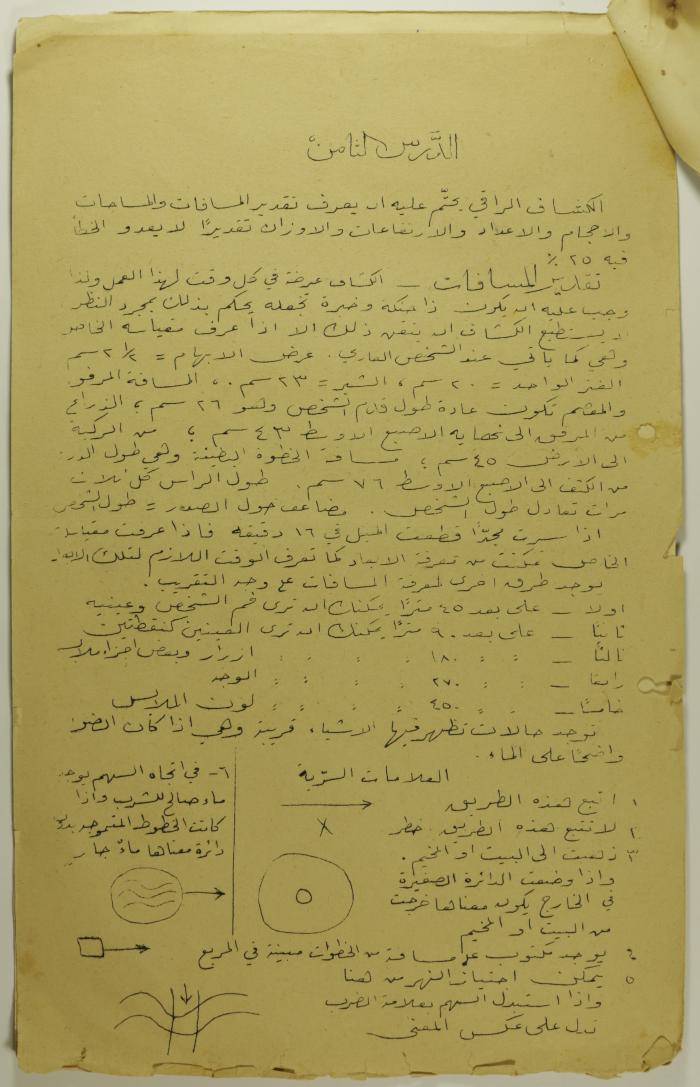 الدَّرس الثامن
الكشاف الراقي يحتّم عليه ان يعرف تقدير المسافات والمساحات
والاحجام والاعداد والارتفاعات والاوزان تقديرًا لا يعدو الخطأ
فيه ٢٥ ٪
تقدير المسافات — الكشاف عرضة في كل وقت لهذا العمل ولذا
وجب عليه ان يكون ذا حنكة وخبرة تجعله يحكم بذلك بمجرد النظر
ولا يستطيع الكشاف ان يتقن ذلك الا اذا عرف مقياسه الخاص
وهي كما يأتي عند الشخص العادي . عرض الابهام = ٢ ١/٢ سم
الفتر الواحد = ٢٠ سم ، الشبر = ٢٣ سم ، المسافة المرفق
والمعصم تكون عادة طول قدم الشخص وهو ٢٦ سم ؛ الذراع
من المرفق الى نهاية الاصبع الاوسط ٤٣ سم ؛ من الركبة
الى الارض ٤٥ سم ؛ مسافة الخطوة البطيئة وهي طول
من الكتف الى الاصبع الاوسط ٧٦ سم . طول الراس كل ثلاث
مرات تعادل طول الشخص . مضاعف حول الصدر = طول الشخص
اذا سرت مجدًّا قطعت الميل في ١٦ دقيقه فاذا عرفت مقياسك
الخاص تمكنت من معرفة الابعاد كما تعرف الوقت اللازم لتلك الابعاد
يوجد طرق اخرى لمعرفة المسافات على وجه التقريب .
اولا — على بعد ٤٥ مترًا يمكنك ان ترى فم الشخص وعينيه
ثانيًا — على بعد ٩٠ مترًا يمكنك ان ترى العينين كنقطتين
ثالثًا — : : ١٨٠ : : : : ازرار وبعض اجزاء ملابس
رابعًا — : : ٢٧٠ : : : : الوجه
خامسًا — : : ٤٥٠ : : : : لون الملابس
توجد حالات تظهر فيها الاشياء قريبة وهي اذا كان الضوء
واضحًا على الماء .
العلامات السرّية
١ اتبع هذه الطريق
٢ لا تتبع هذه الطريق خطر
٣ ذهبت الى البيت او المخيم .
واذا وضعت الدائرة الصغيرة
في الخارج يكون معناها خرجت
من البيت او المخيم
٤ يوجد مكتوب على مسافة من الخطوات مبينة في المربع
٥ يمكن اجتياز النهر من هنا
واذا استبدل السهم بعلامة الضرب
تدل على عكس المعنى
٦- في اتجاه السهم يوجد
ماء صالح للشرب واذا
كانت الخطوط المتموجه
دائرة معناها ماءٌ جارٍ